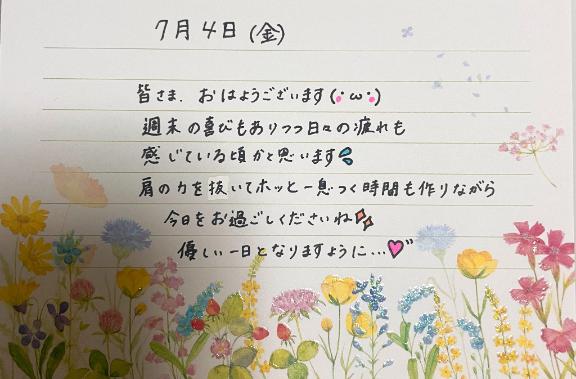 7月4日(金)
皆さま、おはようございます(･ω･)
週末の喜びもありつつ日々の疲れも
感じている頃かと思います💦
肩の力を抜いてホッと一息つく時間も作りながら
今日をお過ごしくださいね✨
優しい一日となりますように…♡"